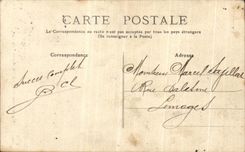 CARTE POSTALE
La Correspondance au recto n'est pas acceptée par tous les pays étrangers
(Se renseigner à la Poste)
Correspondance
Adresse
Succès complet
Monsieur Marcel
Rue
Limoges